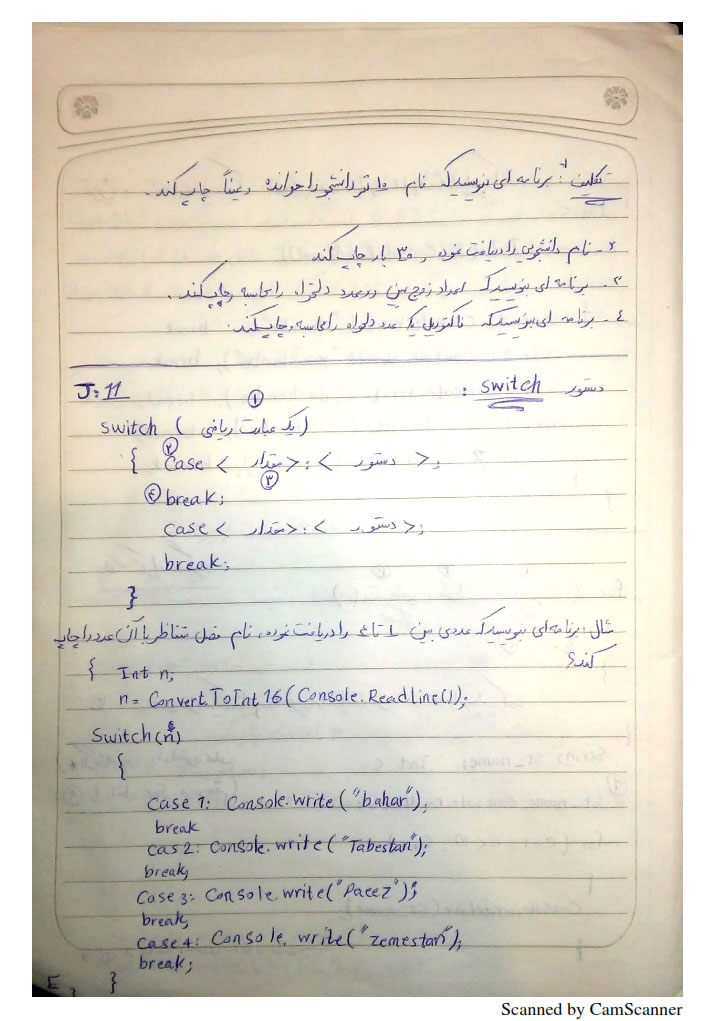 تکلیف ۱: برنامه ای بنویسید که نام ۱۰ نفر دانشجو را خوانده و عیناً چاپ کند.
۲- نام دانشجویی را دریافت نموده و ۳۰ بار چاپ کند
۳- برنامه ای بنویسید که اعداد زوج بین دو عدد دلخواه را محاسبه و چاپ کند.
۴- برنامه ای بنویسید که فاکتوریل یک عدد دلخواه را محاسبه و چاپ کند.
J:11 دستور switch :
①
switch ( یک عبارت ریاضی )
②
{ Case < مقدار >: < دستور >;
③
④ break;
case < مقدار >: < دستور >;
break;
}
مثال: برنامه ای بنویسید که عددی بین ۱ تا ۴ را دریافت نموده، نام فصل متناظر با آن عدد را چاپ
کند؟
{ Int n;
n= Convert.ToInt16(Console.Readline());
Switch(n)
{
Case 1: Console.write("bahar");
break
cas 2: Console.write("Tabestan");
break;
Case 3: Console.write("Paeez");
break;
Case 4: Console.write("zemestan");
break;
}
Scanned by CamScanner